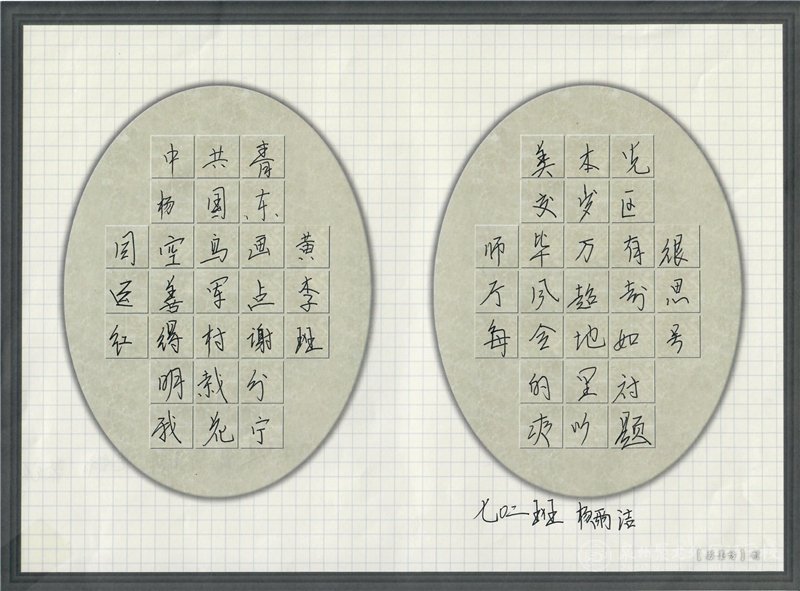 中共青
杨国东
同空鸟画黄
运善军点李
红得村谢班
明载分
我花宁
美本光
交岁区
师毕万有很
厅风超奇思
每会地如号
的里对
爽吵题
七〇二班 杨雨洁